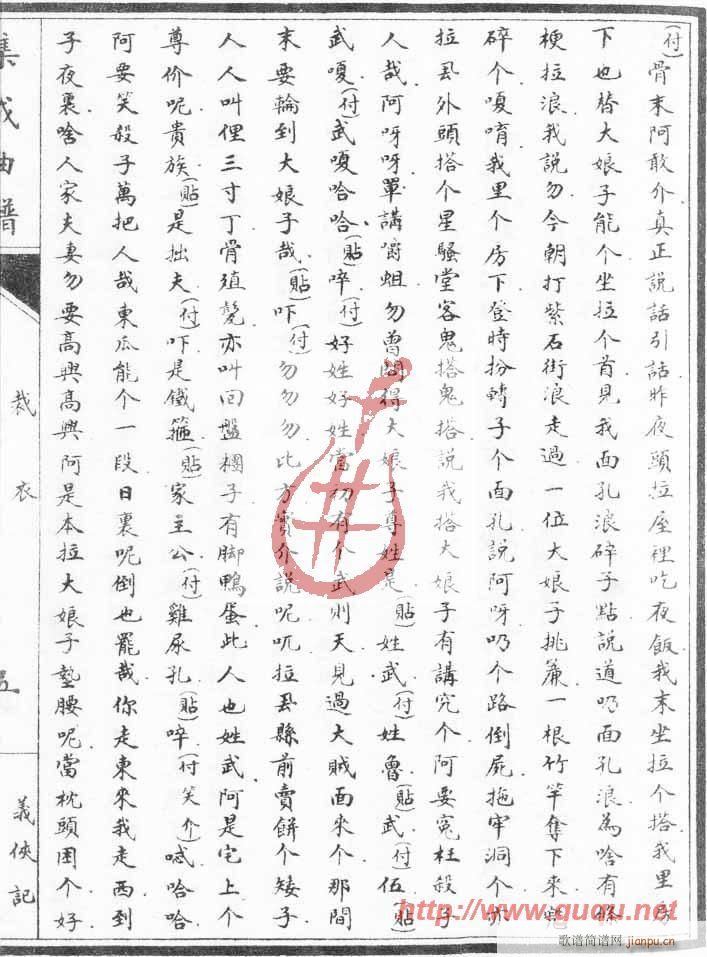 (付)骨末阿敢介真正説話引話昨夜頭拉座裡吃夜飯我末坐拉个搭我里房
下也替大娘子能个坐拉个首見我面孔浪碎子點説道吶面孔浪為啥有條
梗拉浪我説勿今朝打紫石街浪走過一位大娘子挑簾一根竹竿奪下來
碎个嗄唷我里个房下登時扮轉子个面孔説阿呀吶个路倒屍拖牢洞个亦
拉厾外頭搭个星騷堂客鬼搭鬼搭説我搭大娘子有講究个阿要冤枉殺子
人哉阿呀呀單講嚼蛆勿曾問得大娘子尊姓是(貼)姓武(付)姓魯(貼)武(付)伍(貼)
武嗄(付)武嗄哈哈(貼)啐(付)好姓好姓當初有个武則天見過大賊面來个那間
末要輪到大娘子哉(貼)吓(付)勿勿勿比方實介説呢吭拉厾縣前賣餅个矮子
人人叫俚三寸丁骨殖甏亦叫回盤糰子有脚鴨蛋此人也姓武阿是宅上个
尊价呢貴族(貼)是拙夫(付)吓是鐵箍(貼)家主公(付)雞尿孔(貼)啐(付笑介)喊哈哈
阿要笑殺子萬把人哉東瓜能个一段日裏呢倒也罷哉你走東來我走西到
子夜裏啥人家夫妻勿要高興高興阿是本拉大娘子墊腰呢當枕頭困个好
集成曲譜
裁衣
五
義俠記
http://www.ququ.net
歌谱简谱网
jianpu.cn